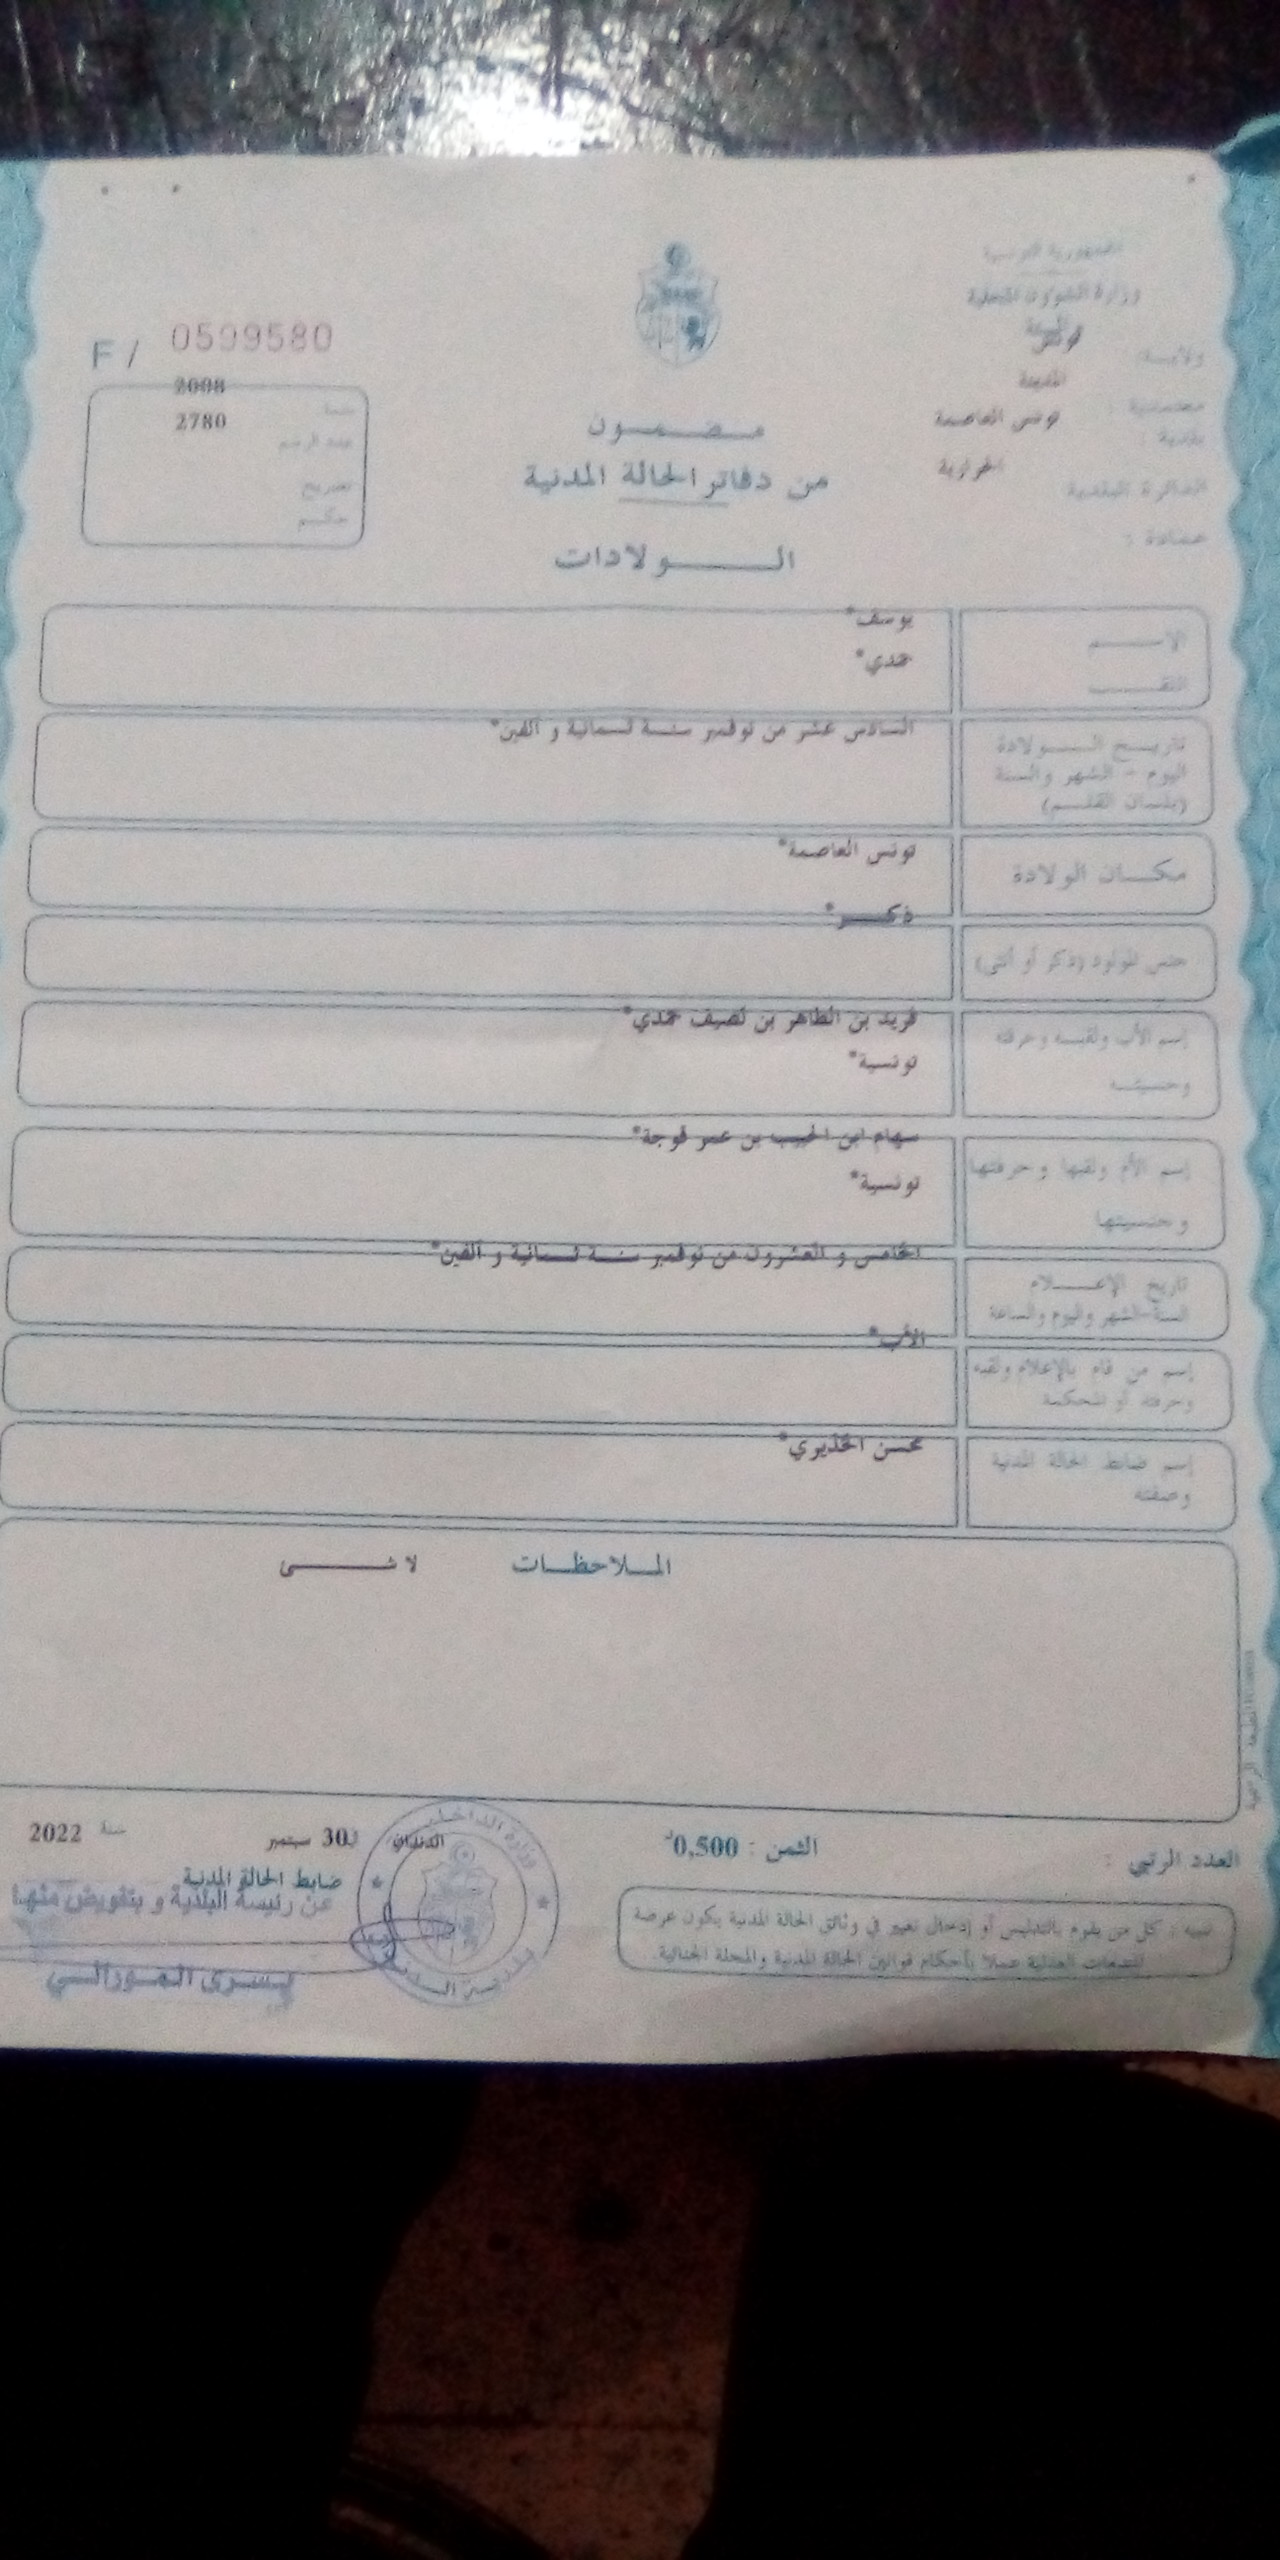 الجمهورية التونسية
وزارة الشؤون المحلية
والبيئة
ولاية: تونس
معتمدية : المدينة
بلدية : تونس العاصمة
الدائرة البلدية الحرايرية
عمادة :
F / 0599580
سنة 2008
عدد الرسم 2780
تصريح
حكم
مضمون
من دفاتر الحالة المدنية
الولادات
الاسم يوسف*
اللقب حمدي*
تاريخ الولادة السادس عشر من نوفمبر سنة ثمانية و ألفين*
اليوم - الشهر والسنة
(بلسان القلم)
مكان الولادة تونس العاصمة*
جنس المولود (ذكر أو أنثى) ذكر*
إسم الأب ولقبه وحرفته فريد بن الطاهر بن نصيف حمدي*
وجنسيته تونسية*
إسم الأم ولقبها وحرفتها سهام ابن الحبيب بن عمر قوجة*
وجنسيتها تونسية*
تاريخ الإعلام الخامس و العشرون من نوفمبر سنة ثمانية و ألفين*
السنة-الشهر واليوم والساعة
إسم من قام بالإعلام ولقبه الأب*
وحرفته أو المحكمة
إسم ضابط الحالة المدنية محسن الخذيري*
وصفته
الملاحظات لا شئ
العدد الرتبي : الثمن : 0,500د الدندان في 30 سبتمبر سنة 2022
ضابط الحالة المدنية
عن رئيسة البلدية و بتفويض منها
يسرى
وزارة الداخلية
تنبيه : كل من يقوم بالتدليس أو إدخال تغيير في وثائق الحالة المدنية يكون عرضة
للتتبعات العدلية عملا بأحكام قوانين الحالة المدنية والمجلة الجنائية.
المطبعة الرسمية